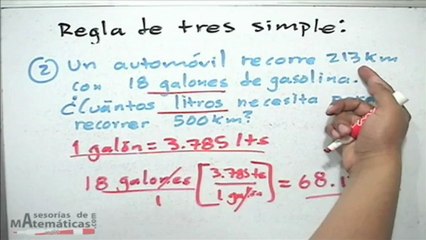 Regla de tres simple:
② Un automóvil recorre 213 km
con 18 galones de gasolina.
¿Cuántos litros necesita
recorrer 500 km?
1 galón = 3.785 lts
18 galones [3.785 lts / 1 galón] = 68.1
1
Asesorías de
Matemáticas.com